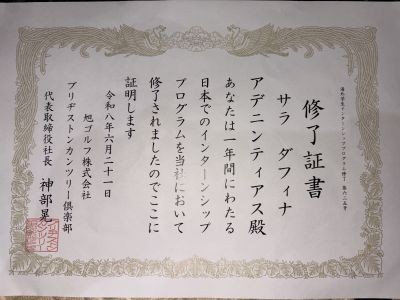 海外学生インターンシッププログラム修了 第六二五号
修了証書
サラ ダフィナ
アデニンティアス殿
あなたは一年間にわたる
日本でのインターンシップ
プログラムを当社において
修了されましたのでここに
証明します
令和八年六月二十一日
旭ゴルフ株式会社
ブリヂストンカンツリー倶楽部
代表取締役社長 神部晃